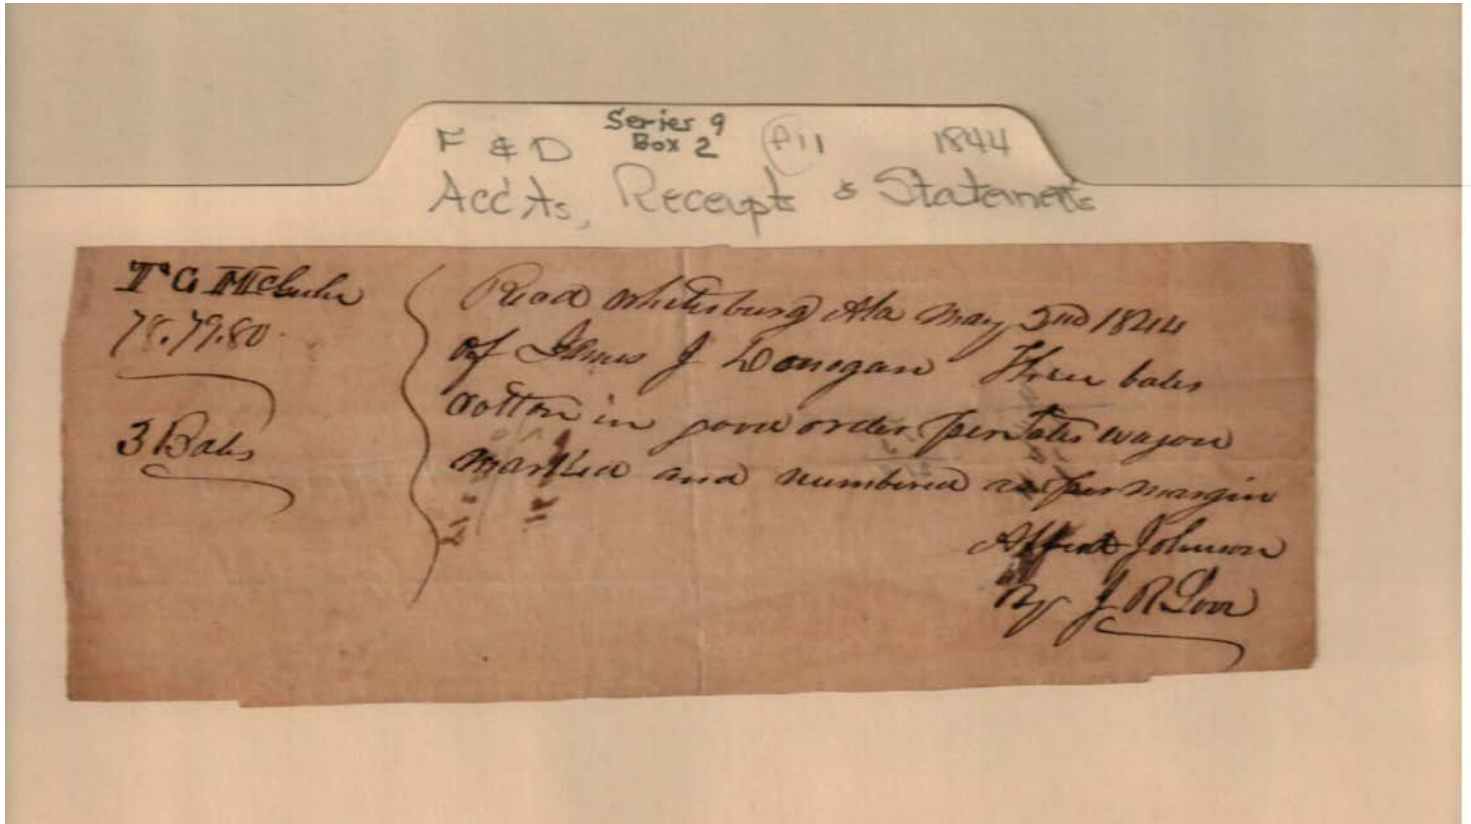 Series 9
F & D Box 2 F11 1844
Acc'ts, Receipts & Statements
78.79.80.
3 Bales
Recd Whitesburg Ala May 2nd 1844
of James J Donegan Three bales
cotton in good order per wagon
marked and numbered as per margin
Johnson
By J R